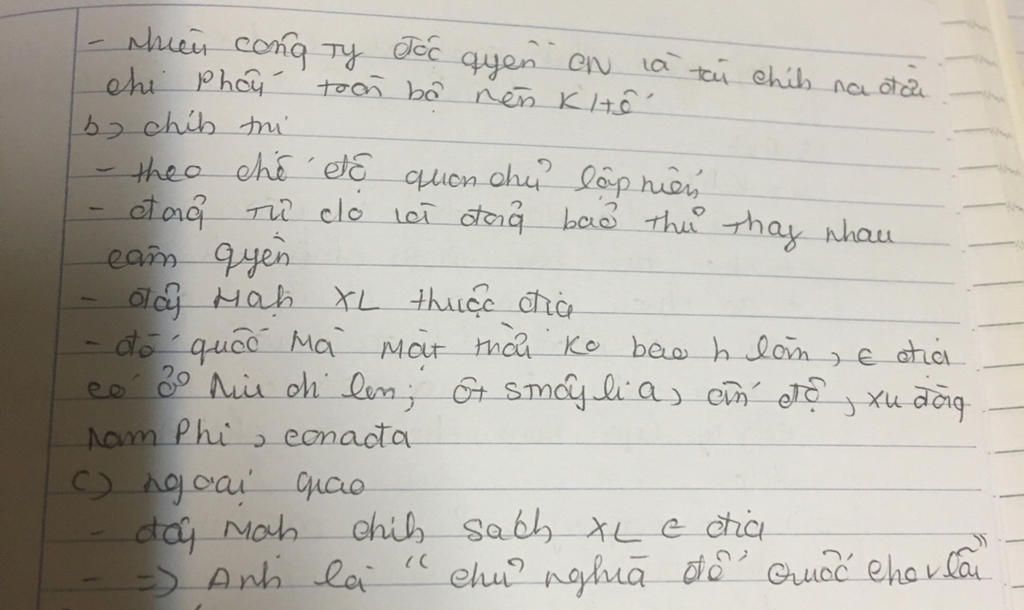 - nhiều công ty độc quyền CN và tài chính ra đời
chi phối toàn bộ nền K/tế
b, chính trị
- theo chế độ quân chủ lập hiến
- đảng tự do và đảng bảo thủ thay nhau
cầm quyền
- đẩy mạnh XL thuộc địa
- đế quốc mà mặt trời ko bao h lặn, € địa
có ở Niu di len, Ôt strây li a, ấn độ, xu đăng
nam Phi, canada
c) ngoại giao
- đẩy mạnh chính sách XL € địa
- => Anh là " chủ nghĩa đế quốc